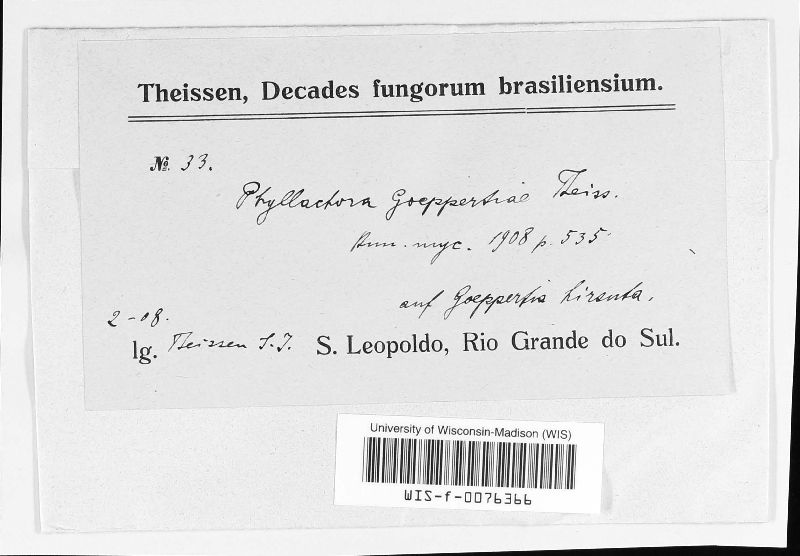 Theissen, Decades fungorum brasiliensium.
№. 33.
Phyllachora Goeppertiae Theiss.
Ann. myc. 1908 p. 535.
auf Goeppertia hirsuta.
2-08.
lg. Theissen S.J. S. Leopoldo, Rio Grande do Sul.
University of Wisconsin-Madison (WIS)
WIS-f-0076366